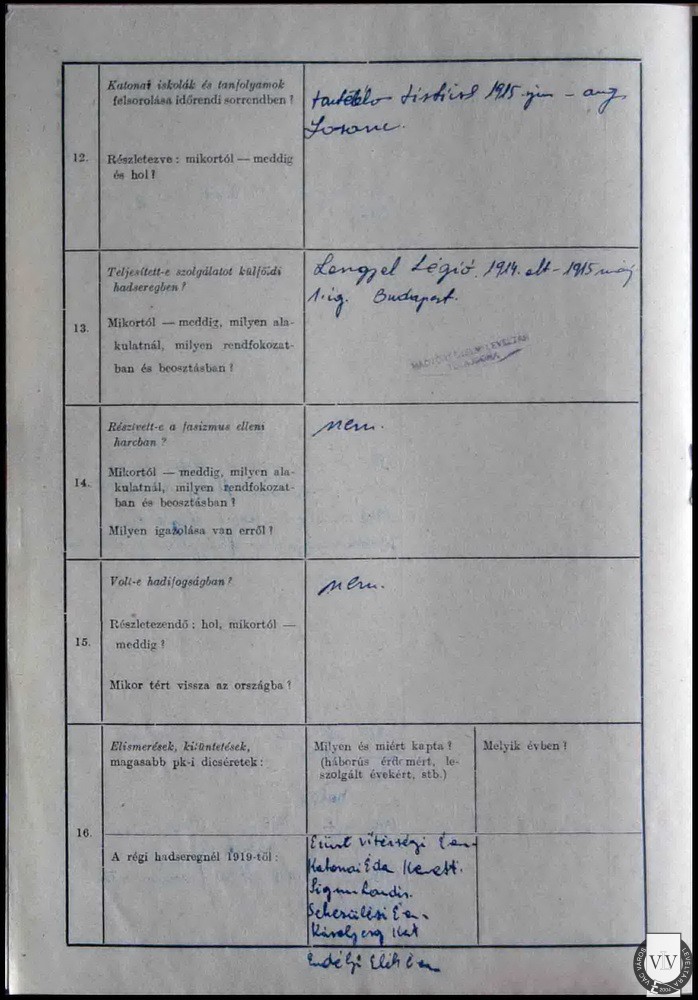 12.
Katonai iskolák és tanfolyamok
felsorolása időrendi sorrendben ?
Részletezve : mikortól — meddig
és hol ?
tiszti isk 1915 jun – aug.
Losonc.
13.
Teljesített-e szolgálatot külföldi
hadseregben ?
Mikortól — meddig, milyen ala-
kulatnál, milyen rendfokozat-
ban és beosztásban ?
Lengyel Légió. 1914. – 1915 máj
1-ig. Budapest.
14.
Résztvett-e a fasizmus elleni
harcban ?
Mikortól — meddig, milyen ala-
kulatnál, milyen rendfokozat-
ban és beosztásban ?
Milyen igazolása van erről ?
nem.
15.
Volt-e hadifogságban ?
Részletezendő : hol, mikortól —
meddig ?
Mikor tért vissza az országba ?
nem.
16.
Elismerések, kitüntetések,
magasabb pk-i dicséretek :
Milyen és miért kapta ?
(háborús érdemért, le-
szolgált évekért, stb.)
Melyik évben ?
A régi hadseregnél 1919-től :
Ezüst Vitézségi Ér-
Katonai Érd. Kereszt.
Signum Laudis.
Sebesülési Ér-
Károly
Erdélyi
VÁC VÁROS LEVÉLTÁRA
VV
2004